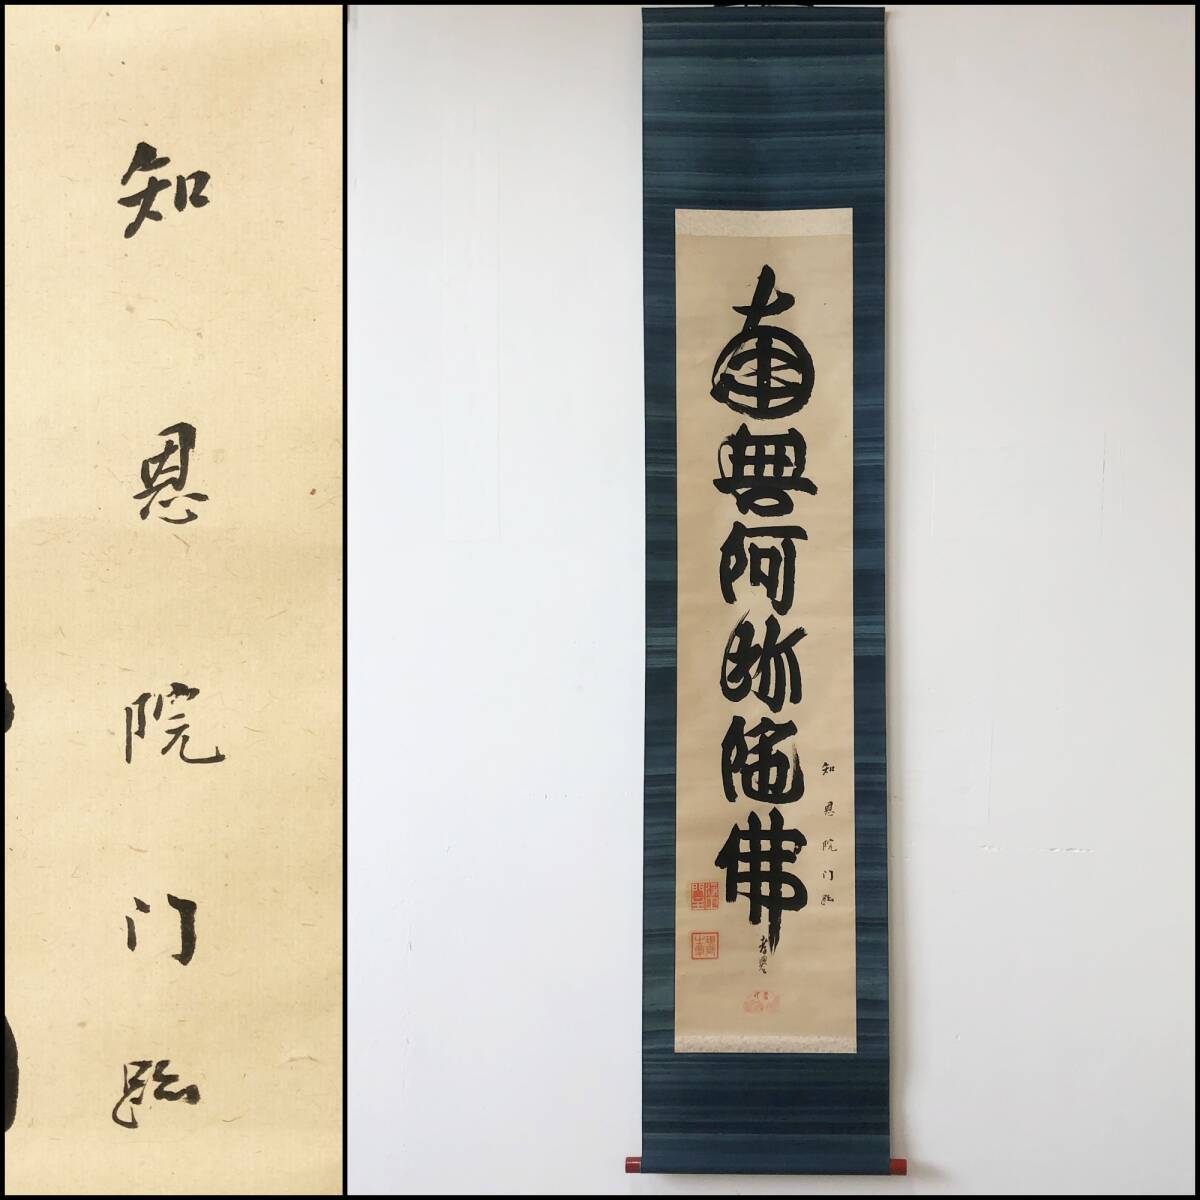 知恩院门跡
南無阿弥陀佛
知恩院门跡